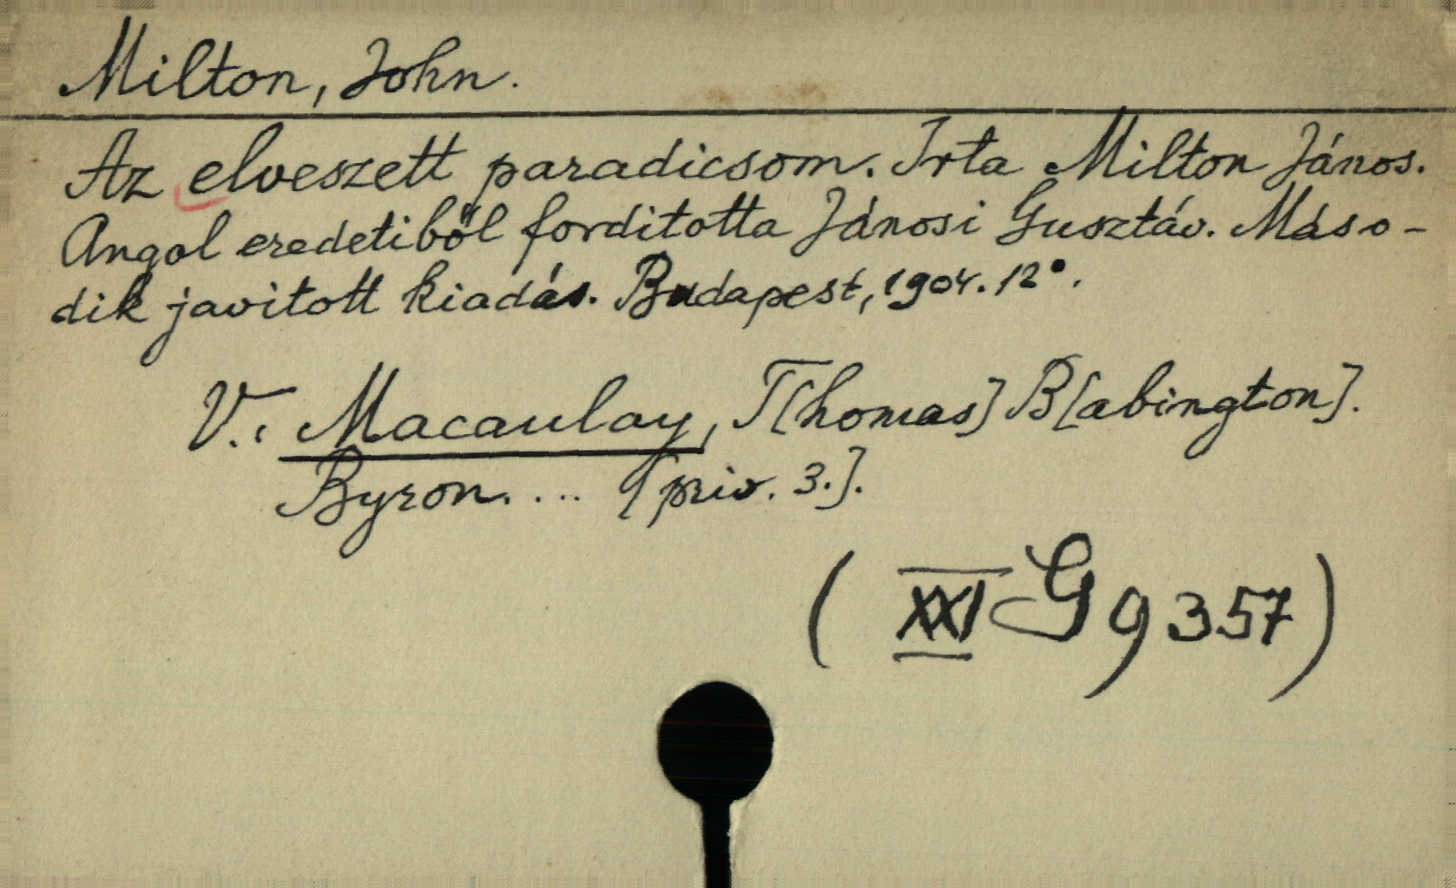 Milton, John.
Az elveszett paradicsom. Irta Milton János.
Angol eredetiből forditotta Jánosi Gusztáv. Máso-
dik javitott kiadás. Budapest, 1904. 12°.
V.: Macaulay, T[homas] B[abington].
Byron. ... [priv. 3.].
(XXI G 9357)